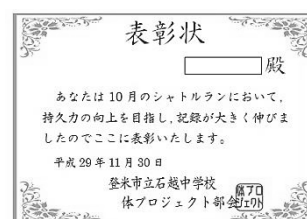 表彰状
殿
あなたは10月のシャトルランにおいて，
持久力の向上を目指し，記録が大きく伸びま
したのでここに表彰いたします。
平成29年11月30日
登米市立石越中学校
体プロジェクト部会